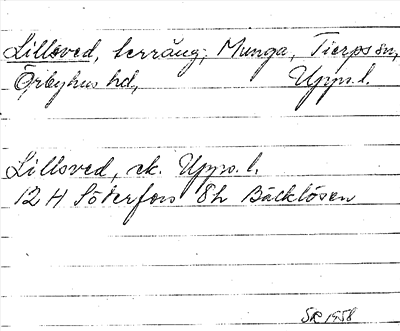 Lillsved, terräng; Munga, Tierps sn,
Örbyhus hd, Upps. l.
Lillsved, ek. Upps. l.
12 H Söderfors 8h Bäcklösen
SR 1958